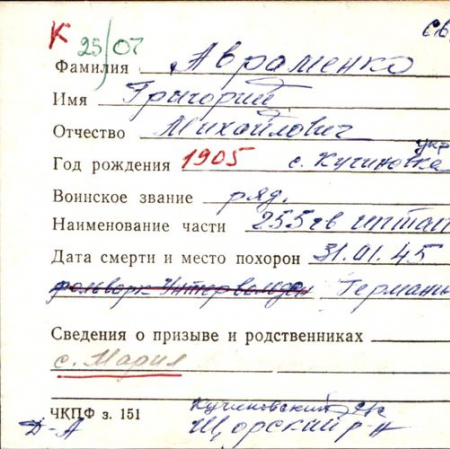 К 25/07 св
Фамилия Авраменко
Имя Григорий
Отчество Михайлович укр
Год рождения 1905 с. Кучиновка
Воинское звание ряд.
Наименование части 255 гв штаб
Дата смерти и место похорон 31.01.45
фольварк Унтервальден Германи
Сведения о призыве и родственниках
с. Мария
ЧКПФ з. 151 Кучиновский с/с
Д-А Щорский р-н